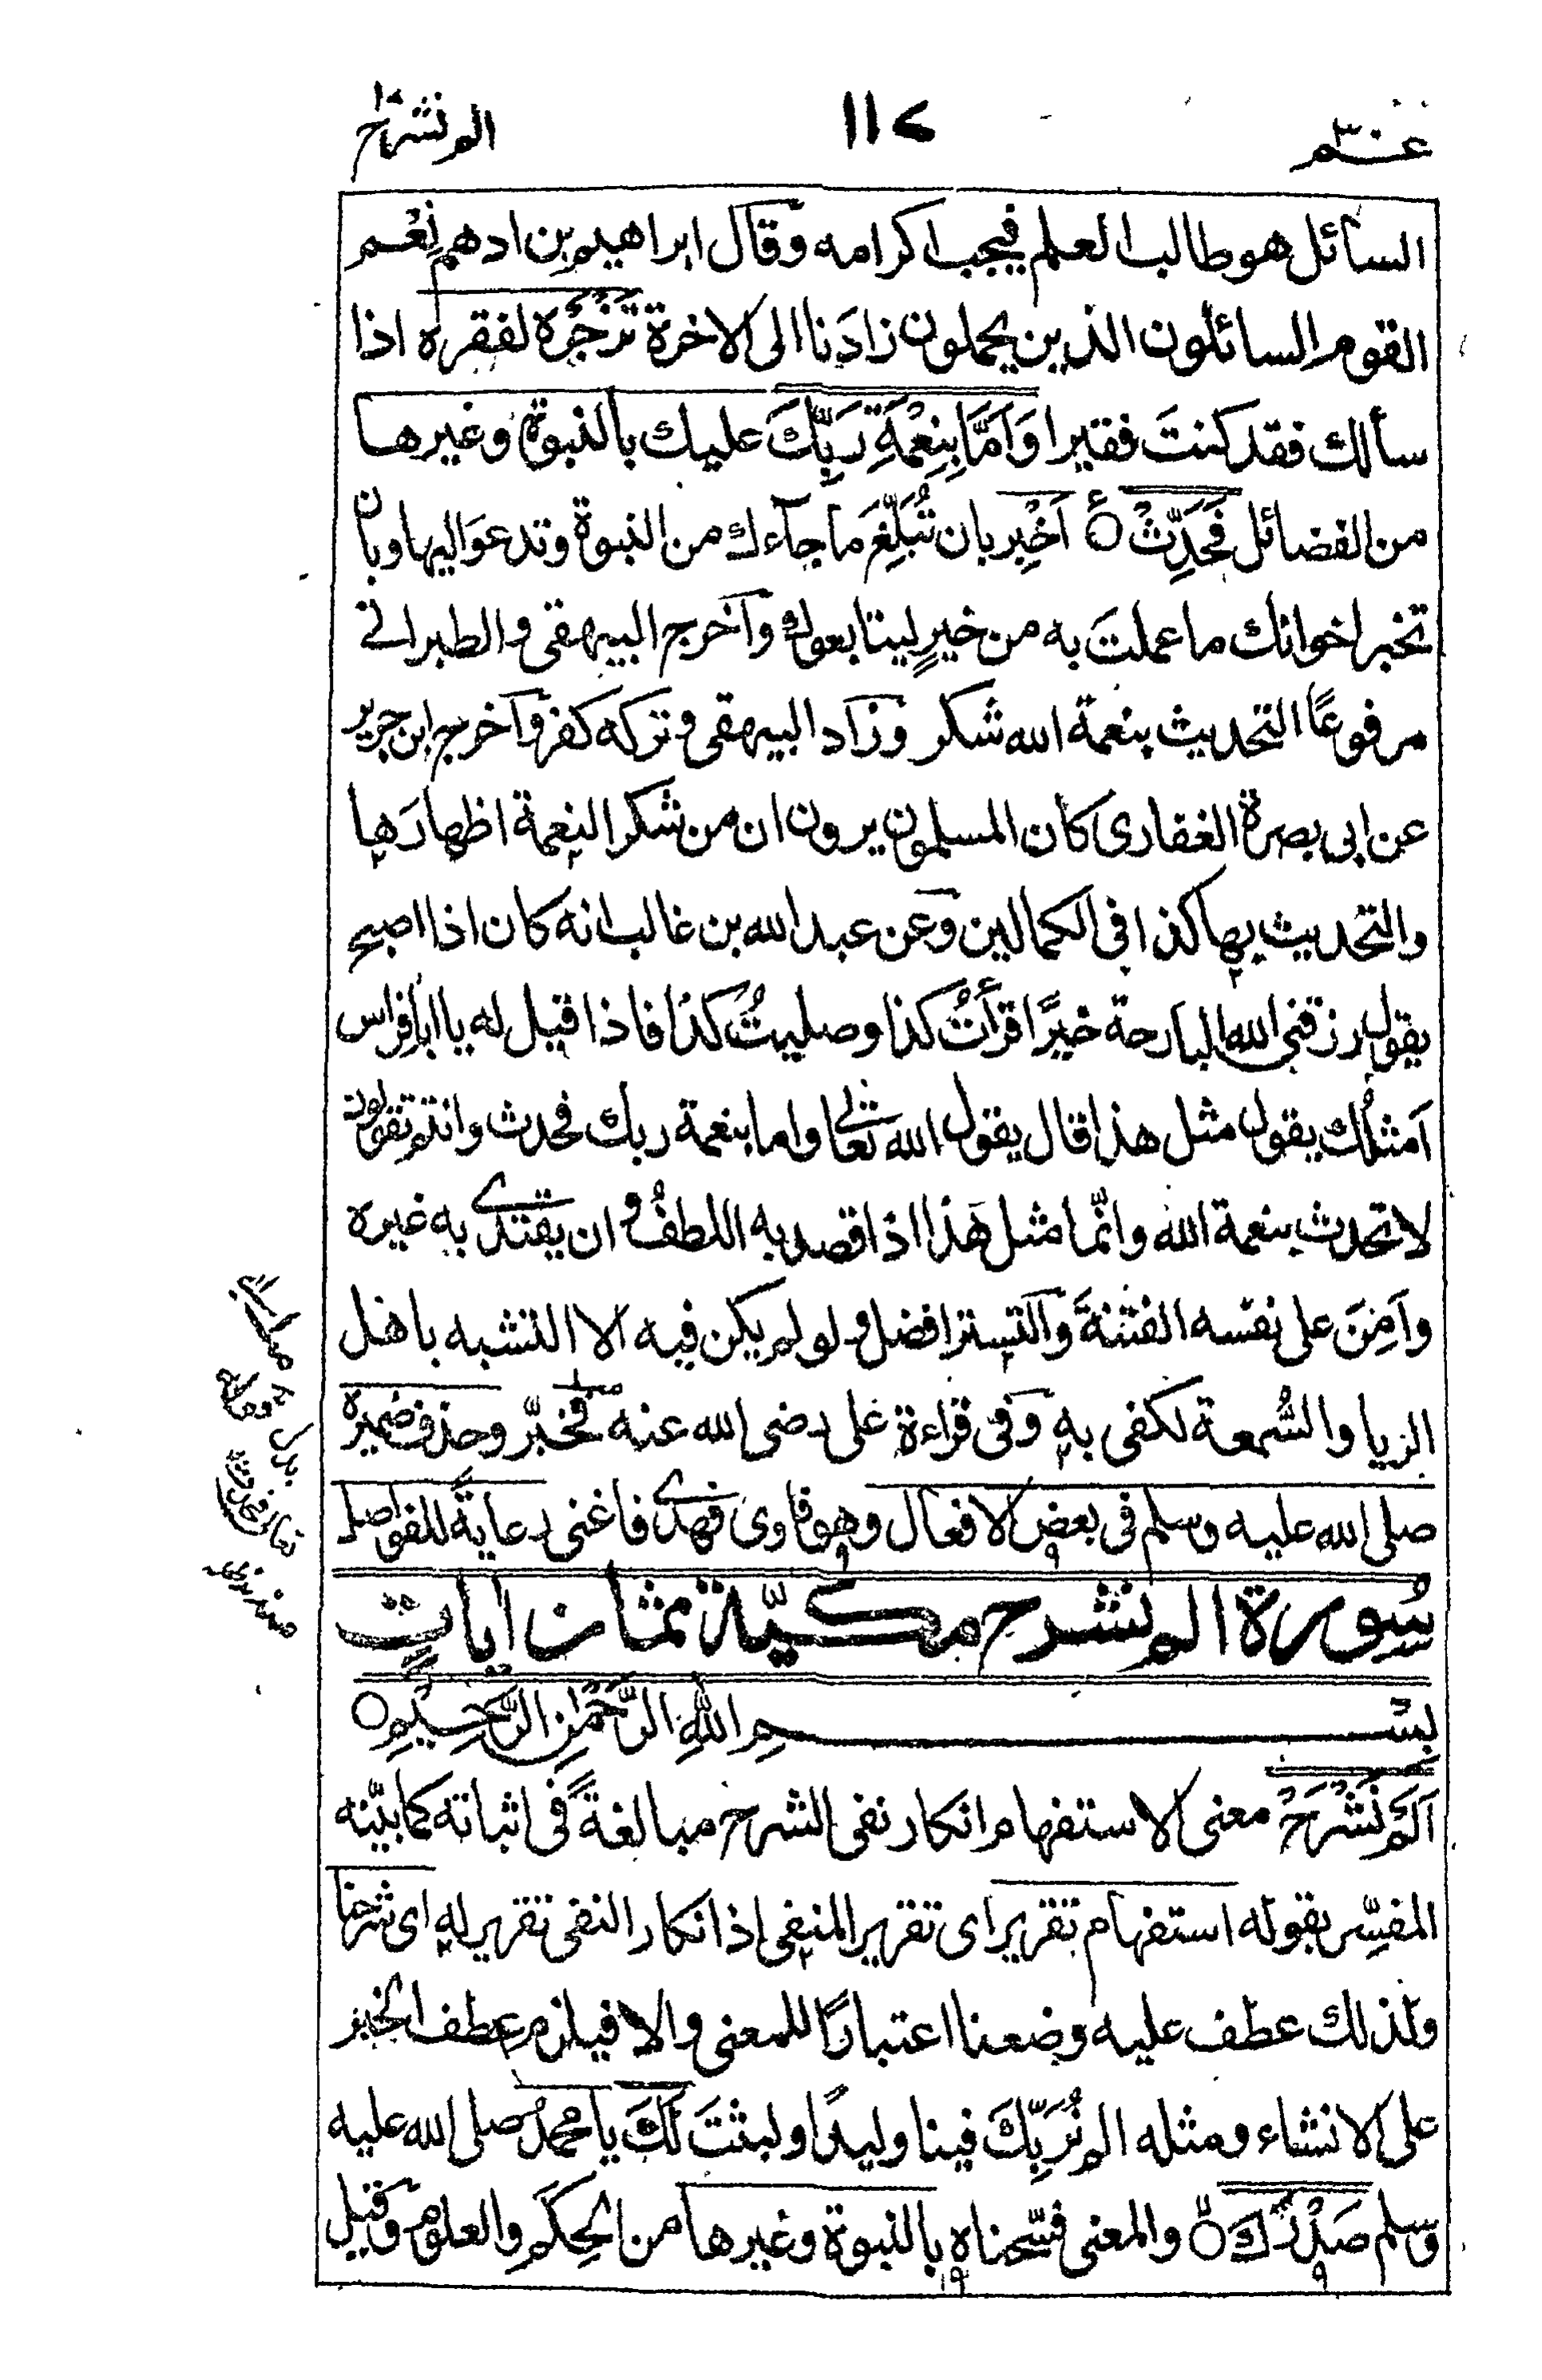 عم ٣٠
١١٧
الم نشرح
السائل هو طالب العلم فيجب اكرامه وقال ابراهيم بن ادهم نِعْم
القوم السائلون الذين يحملون زادَنا الى الاخرة تَزْجُره لفقره اذا
سألك فقد كنتَ فقيرا وَاَمَّا بِنِعْمَةِ رَبِّكَ عليك بالنبوة وغيرها
من الفضائل فَحَدِّثْ ۝ اَخْبِر بان تُبَلِّغَ ما جآءك من النبوة وتدعوَ اليها وبان
تخبر اخوانك ما عملتَ به من خيرٍ ليتابعوك واخرج البيهقى والطبرانى
مرفوعًا التحديث بنعمة الله شكر وزاد البيهقى وتركه كفر واخرج ابن جرير
عن ابى بصرة الغفارى كان المسلمون يرون ان من شكر النعمة اظهارَها
والتحديث بها كذا فى الكمالين وعن عبد الله بن غالب انه كان اذا اصبح
يقول رزقنى الله البارحة خيرًا قرأتُ كذا وصليتُ كذا فاذا قيل له يا ابا فراس
اَمثلُك يقول مثل هذا قال يقول الله تعالى واما بنعمة ربك فحدث وانتم تقولون
لا تحدث بنعمة الله وانّما مثل هذا اذا قصد به اللطفُ وان يقتدى به غيره
واَمِنَ على نفسه الفتنةَ والتستر افضل ولو لم يكن فيه الا التشبه باهل
الريا والسُّمعة لكفى به وفى قراءة على رضى الله عنه فخبّر وحذف ضميره
صلى الله عليه وسلم فى بعض الافعال وهو فاوى فهدى فاغنى رعايةً للفواصل
سُورة الم نشرح مكيّة ثمان اياتٍ
بِسْمِ اللهِ الرَّحْمٰنِ الرَّحِيْمِ ۝
اَلَمْ نَشْرَحْ معنى الاستفهام انكار نفى الشرح مبالغةً فى اثباته كما بيّنه
المفسِّر بقوله استفهام تقرير اى تقرير المنفى اذ انكار النفى تقرير له اى شرحنا
ولذلك عطف عليه وضعنا اعتبارًا للمعنى والا فيلزم عطف الخبر
على الانشاء ومثله الم نُرَبِّكَ فينا وليدًا ولبثتَ لَكَ يا محمدُ صلى الله عليه
وسلم صَدْرَكَ ۝ والمعنى فسّحناه بالنبوة وغيرها من الحِكَم والعلوم وقيل